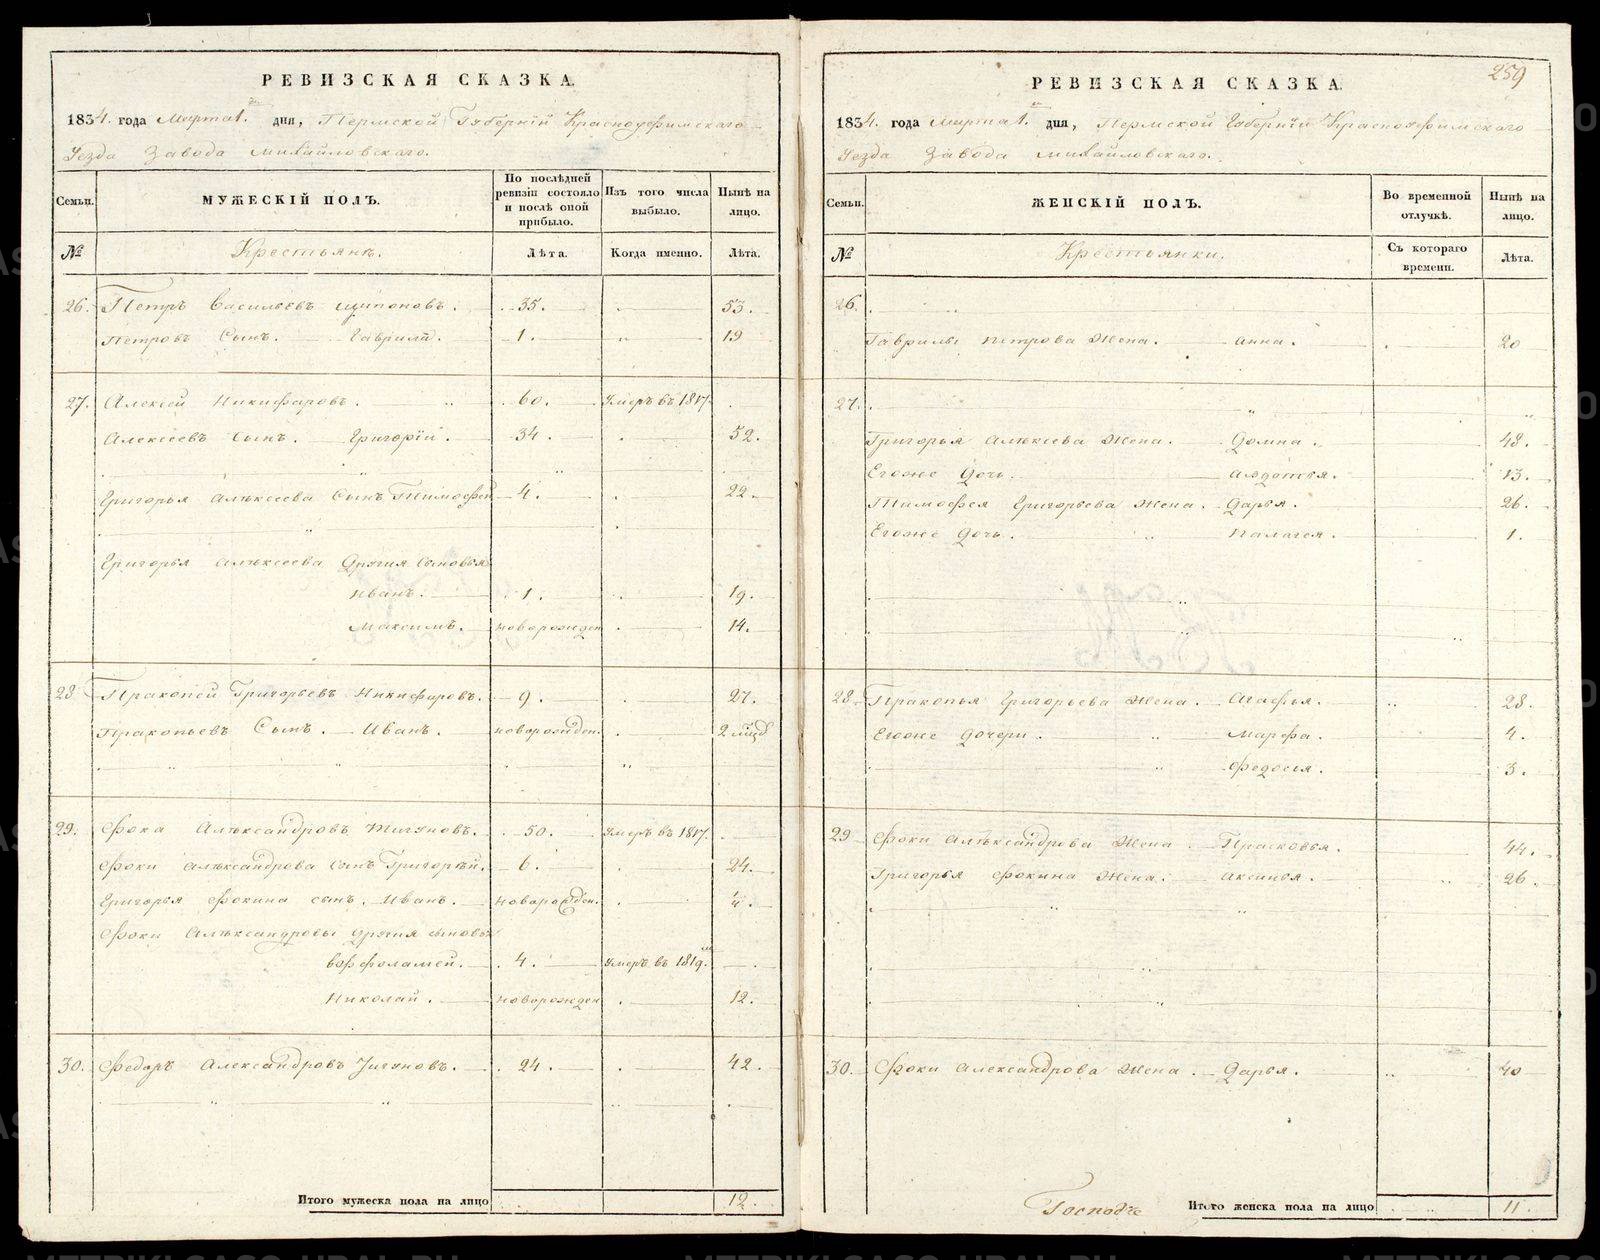 РЕВИЗСКАЯ СКАЗКА.
1834. года Марта 1. дня, Пермской Губерніи Красноуфимскаго
Уезда Завода Михайловскаго.
Семьи.
МУЖЕСКІЙ ПОЛЪ.
По послѣдней ревизіи состояло и послѣ оной прибыло.
Изъ того числа выбыло.
Нынѣ на лицо.
№
Крестьянъ.
Лѣта.
Когда именно.
Лѣта.
26. Петръ Васильевъ . 35. 53.
Петровъ Сынъ. Гаврила. 1. 19
27. Алексей Никифаровъ. 60. Умеръ въ 1817.
Алексеевъ Сынъ. Григорій. 34. 52.
Григорья Алѣксеева Сынъ Тимофей 4. 22.
Григорья Алѣксеева Другия Сыновья
Иванъ. 1. 19.
Максимъ. новорожден 14.
28 Пракопей Григорьевъ Никифаровъ. 9. 27.
Пракопьевъ Сынъ. Иванъ. новорожден. 2
29. Фока Алѣксандровъ Жигуновъ. 50. Умеръ въ 1817.
Фоки Алѣксандрова Сынъ Григорѣй. 6. 24.
Григорья Фокина сынъ. Иванъ. новарожден. 4.
Фоки Алѣксандровы другия сыновья
4. Умеръ въ 1819.
Николай. новорожден 12.
30. Федоръ Александровъ Жигуновъ. 24. 42.
Итого мужеска пола на лицо 12.
259
РЕВИЗСКАЯ СКАЗКА.
1834. года Марта 1. дня, Пермской Губерніи Красноуфимскаго
Уезда Завода Михайловскаго.
Семьи.
ЖЕНСКІЙ ПОЛЪ.
Во временной отлучкѣ.
Нынѣ на лицо.
№
Крестьянки.
Съ котораго времени.
Лѣта.
26.
Гаврилы Петрова Жена. Анна. 20
27.
Григорья Алѣксеева Жена. Домна. 48.
Егоже Дочь. Авдотья. 13.
Тимофея Григорьева Жена. Дарья. 26.
Егоже Дочь. Палагея. 1.
28. Пракопья Григорьева Жена. Агафья. 28.
Егоже Дочери. Марфа. 4.
Федосья. 3.
29 Фоки Алѣксандрова Жена. Прасковья. 44.
Григорья Фокина Жена. Аксинья. 26.
30. Фоки Александрова Жена. Дарья. 40
Господѣ
Итого женска пола на лицо 11
METRIKI.GASO-URAL.RU
METRIKI.GASO-URAL.RU